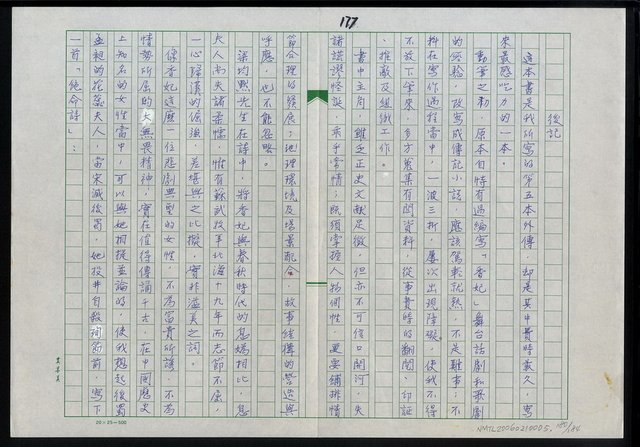 177
後記
這本書是我所寫的第五本外傳,卻是其中費時最久,寫
來最感吃力的一本。
動筆之初,原本自恃有過編寫「香妃」舞台話劇和歌劇
的經驗,改寫成傳記小說,應該駕輕就熟,不是難事;不
料在寫作過程當中,一波三折,屢次出現障礙,使我不得
不放下筆來,多方蒐集有關資料,從事費時的翻閱、印証
、推敲及組織工作。
書中主角,雖乏正史文献足徵,但亦不可信口開河,失
諸荒謬怪誕,乖乎常情;既須掌握人物個性,更要鋪排情
節合理的發展;地理環境及場景配合,故事結構的營造與
呼應,也不能忽略。
梁均默先生在詩中,將香妃與春秋時代的息媯相比,息
夫人尚失諸柔懦,惟有蘇武牧羊北海十九年而志節不屈,
一心歸漢的傲骨,差堪與之比擬,實非溢美之詞。
像香妃這麼一位悲劇典型的女性,不為富貴所誘,不為
情勢所屈的大無畏精神,實在值得傳誦千古,在中國歷史
上知名的女性當中,可以與她相提並論的,使我想起後蜀
孟昶的花蕊夫人,當宋滅後蜀,她投井自殺殉節前,寫下
一首「絕命詩」:
20×25=500
NMTL20060210005
180/184